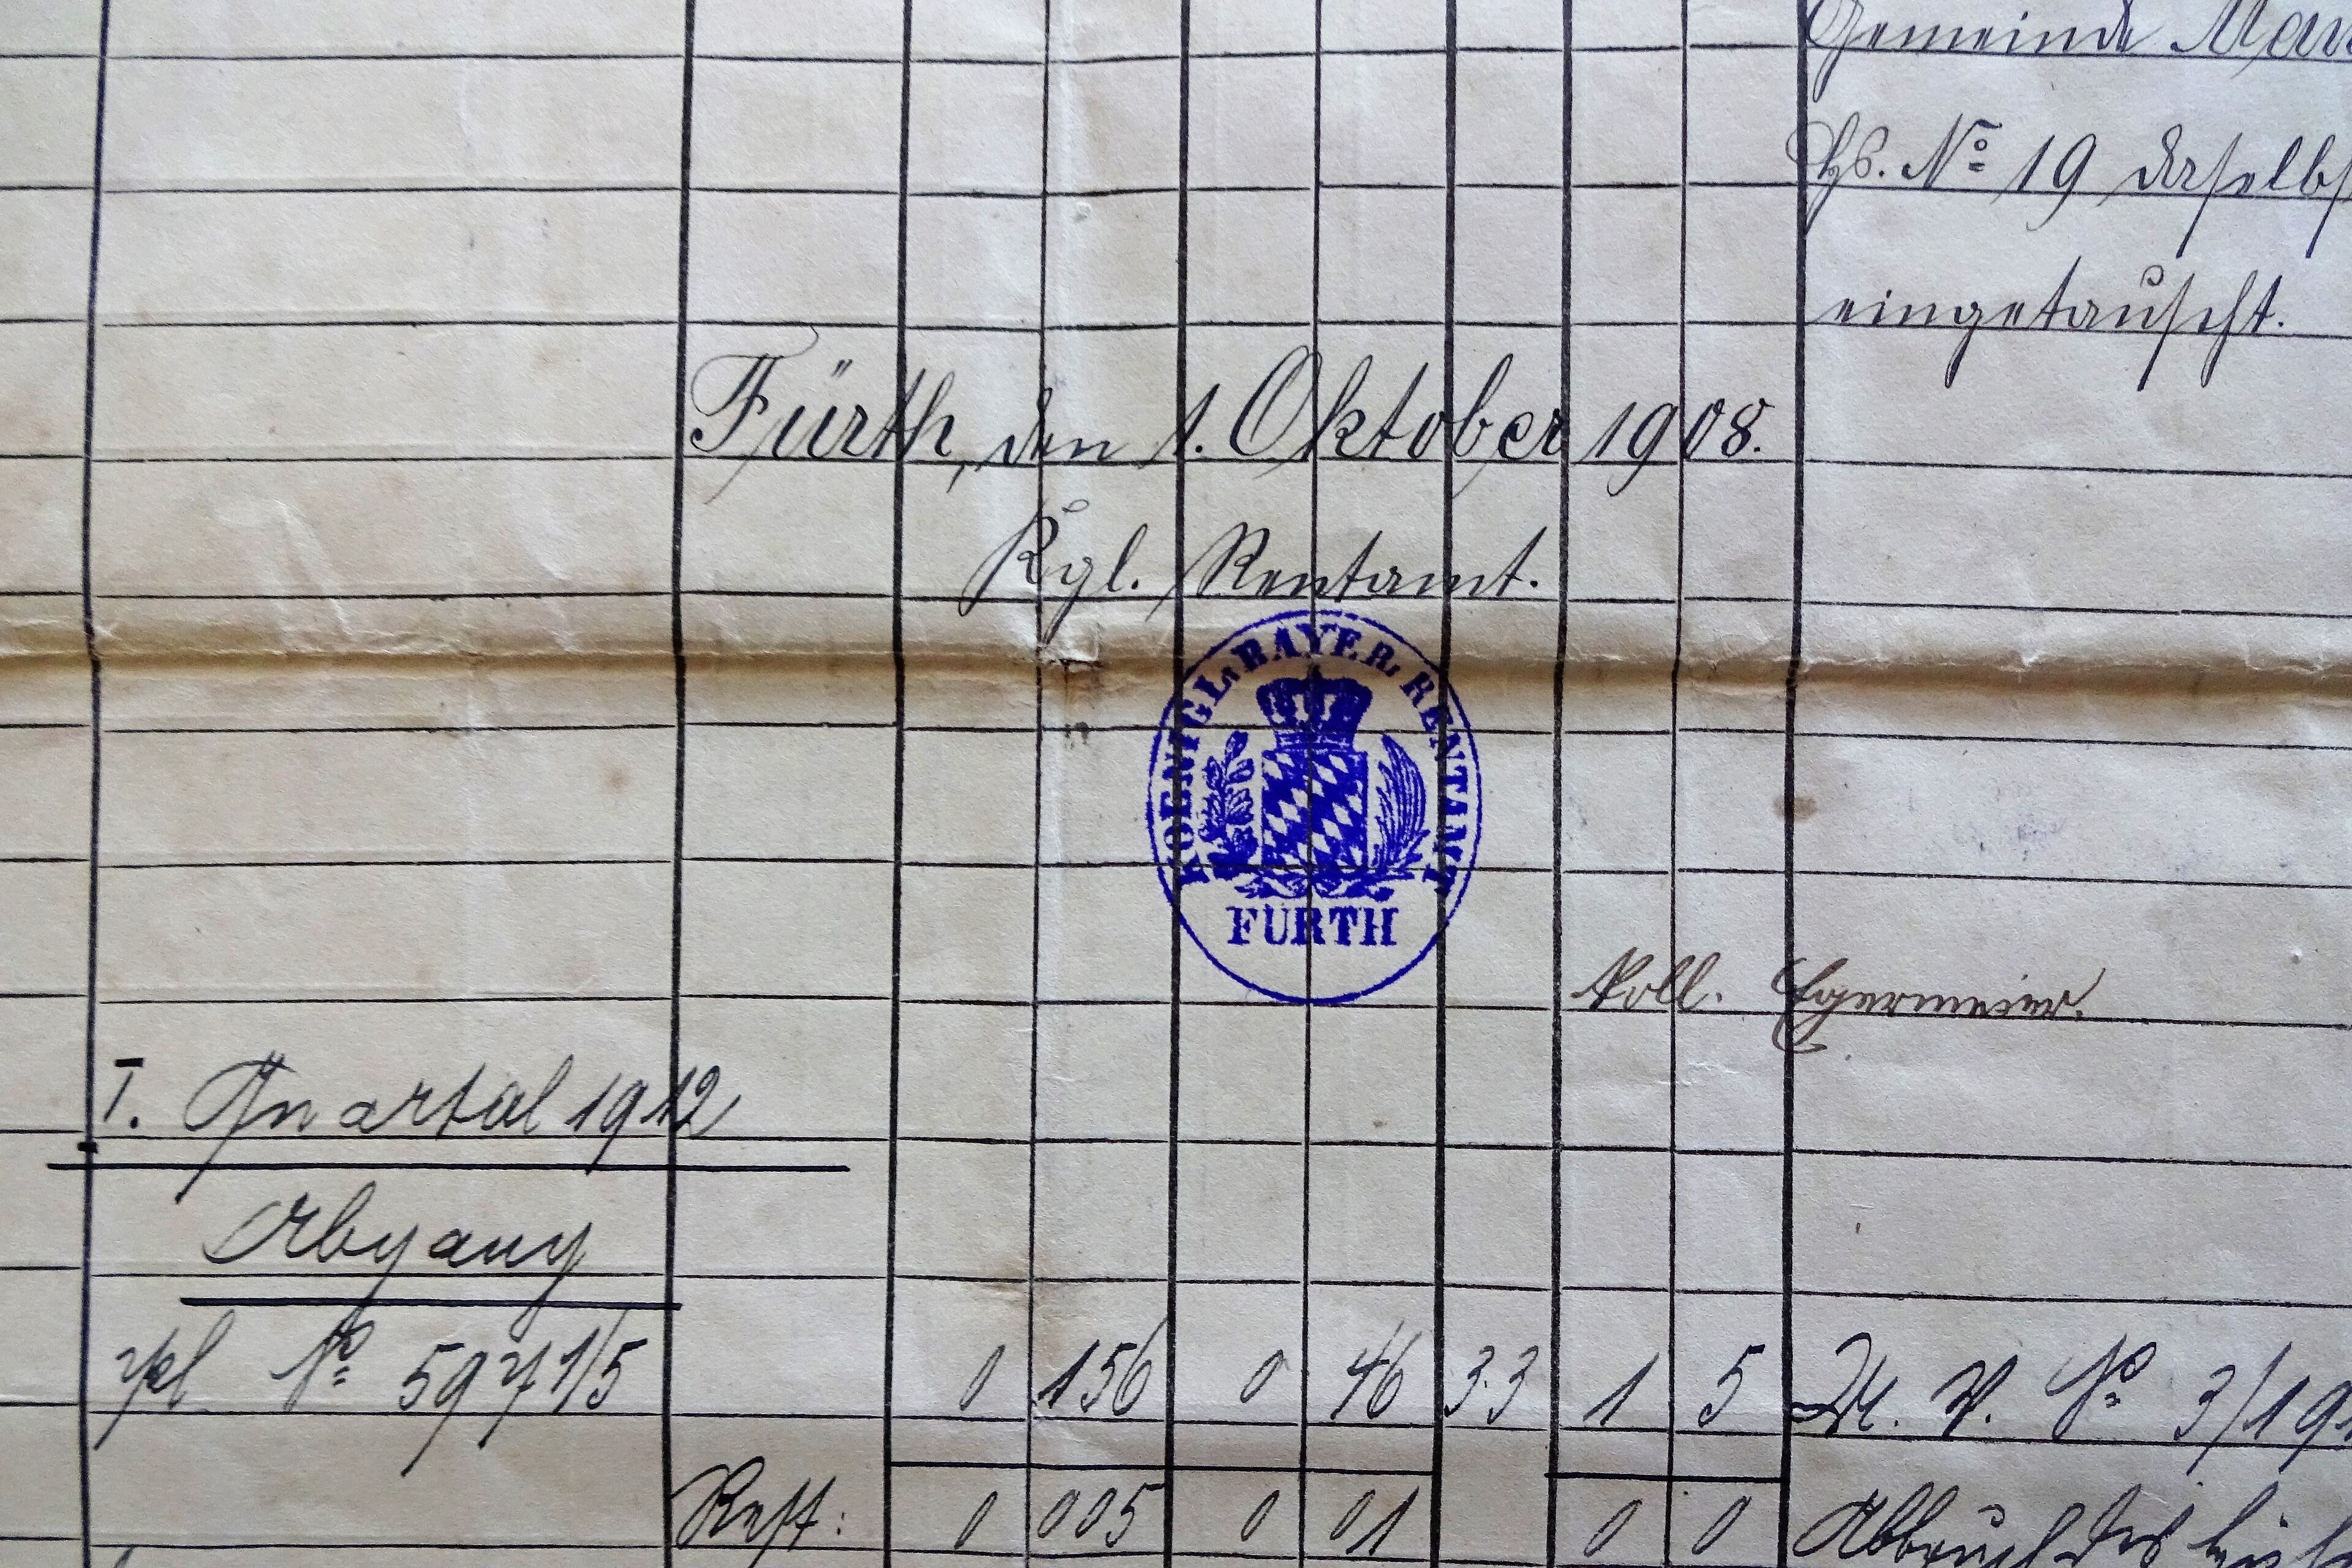 Gemeinde
Hs. No 19 daselbst
eingetauscht.
Fürth, den 1. Oktober 1908.
Kgl. Rentamt.
KOENIGL. BAYER. RENTAMT
FÜRTH
Egermeier.
I. Quartal 1912
Abgang
No 597 1/5 0 156 0 46 33 1 5 No 3/19
Rest: 0 005 0 01 0 0 Abbruch des